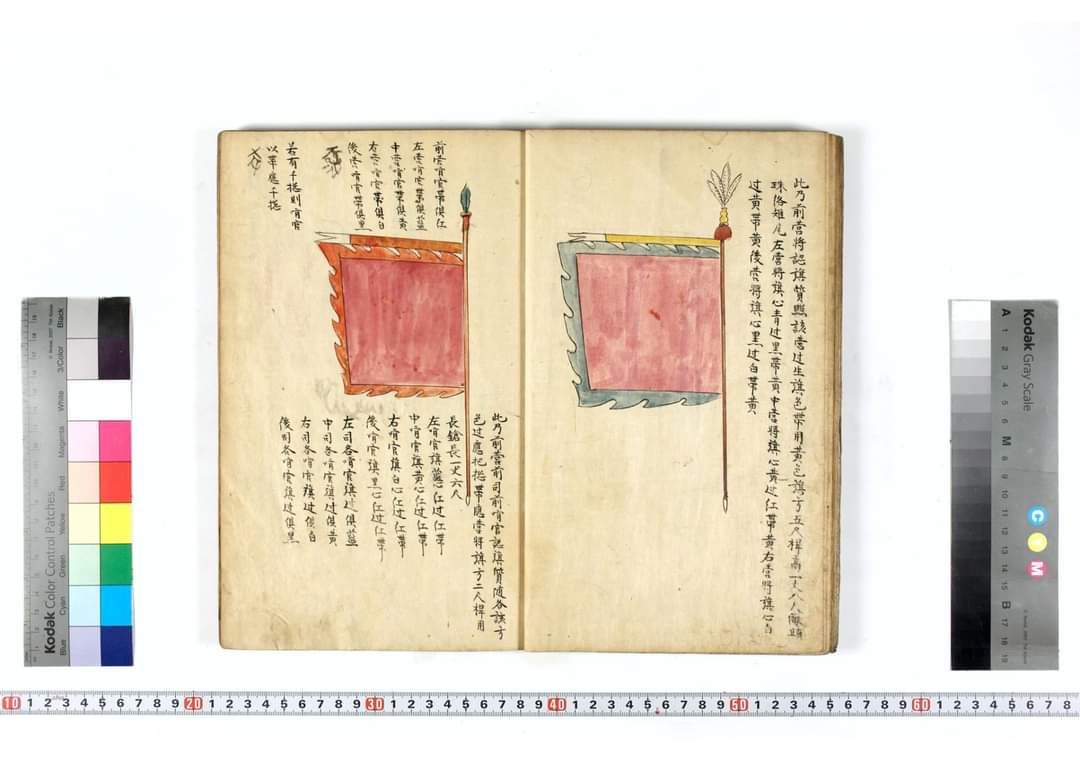 此乃前营將認旗質照該营边生旗色帶用黄色旗方五尺桿高一丈八尺纓頭
珠洛雉尾左营將旗心青边黑帶黄中营將旗心黄边紅帶黄右营將旗心白
边黄帶黄後营將旗心黑边白帶黄
前营哨官帶俱红
左营哨官帶俱藍
中营哨官帶俱黄
右营哨官帶俱白
後营哨官帶俱黑
若有千摠則哨官
以帶應千摠
此乃前营前司前哨官認旗質随各該方
色边應把摠帶應营將旗方二尺桿用
長鎗長一丈六尺
左哨官旗藍心红边红帶
中哨官旗黄心红边红帶
右哨官旗白心红边红帶
後哨官旗黑心红边红帶
左司各哨官旗边俱藍
中司各哨官旗边俱黄
右司各哨官旗边俱白
後司各哨官旗边俱黑
Kodak Color Control Patches
Blue Cyan Green Yellow Red Magenta White 3/Color Black
Kodak Gray Scale
A 1 2 3 4 5 6 M 8 9 10 11 12 13 14 15 B 17 18 19
C Y M
10 1 2 3 4 5 6 7 8 9 20 1 2 3 4 5 6 7 8 9 30 1 2 3 4 5 6 7 8 9 40 1 2 3 4 5 6 7 8 9 50 1 2 3 4 5 6 7 8 9 60 1 2 3 4 5 6 7 8